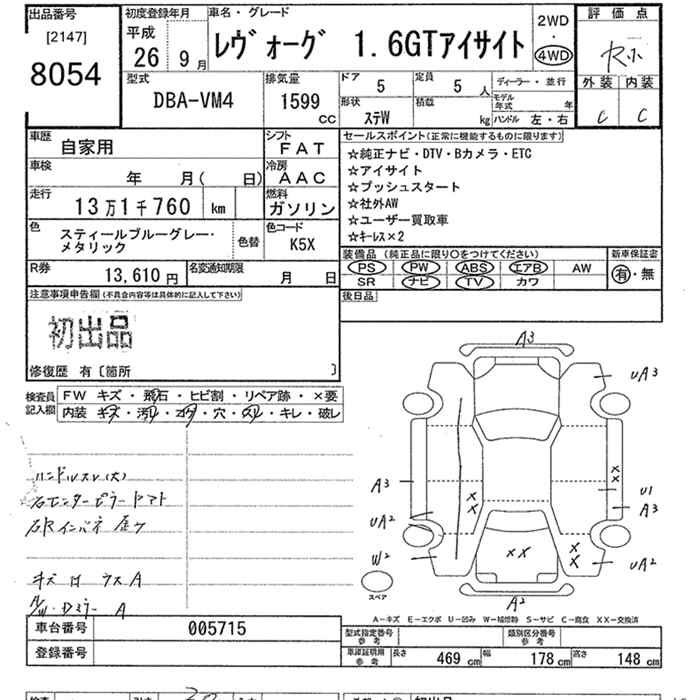 出品番号
[2147]
8054
初度登録年月
平成
26 9月
車名・グレード
レヴォーグ 1.6GTアイサイト
2WD
・
4WD
評価点
R小
外装 内装
C C
型式
DBA-VM4
排気量
1599
cc
ドア
5
定員
5 人
ディーラー・並行
形状
ステW
積載
kg
モデル年式 年
ハンドル 左・右
車歴
自家用
シフト
FAT
車検
年 月( 日)
冷房
AAC
走行
13万1千760 km
燃料
ガソリン
色
スティールブルーグレー・
メタリック
色替
色コード
K5X
R券
13,610 円
名変通知期限
月 日
セールスポイント(正常に機能するものに限ります)
☆純正ナビ・DTV・Bカメラ・ETC
☆アイサイト
☆プッシュスタート
☆社外AW
☆ユーザー買取車
☆キーレス×2
装備品 (純正品に限り○をつけてください)
PS PW ABS エアB AW
SR ナビ TV カワ
新車保証書
有・無
後日品
注意事項申告欄(不具合内容等は具体的に記入して下さい)
初出品
修復歴 有〔箇所 〕
検査員
記入欄
FW キズ・飛石・ヒビ割・リペア跡・×要
内装 キズ・汚レ・コゲ・穴・スレ・キレ・破レ
ハンドルスレ(大)
右センターピラー
右Rインパネ
キズ
A
A3
UA3
A3
UA2
W2
××
××
U1
A3
UA2
××
××
A2
スペア
A-キズ E-エクボ U-凹み W-補修跡 S-サビ C-腐食 XX-交換済
車台番号
005715
登録番号
型式指定番号
参考
類別区分番号
参考
車庫証明用
参考
長さ 469 cm 幅 178 cm 高さ 148 cm
初出品